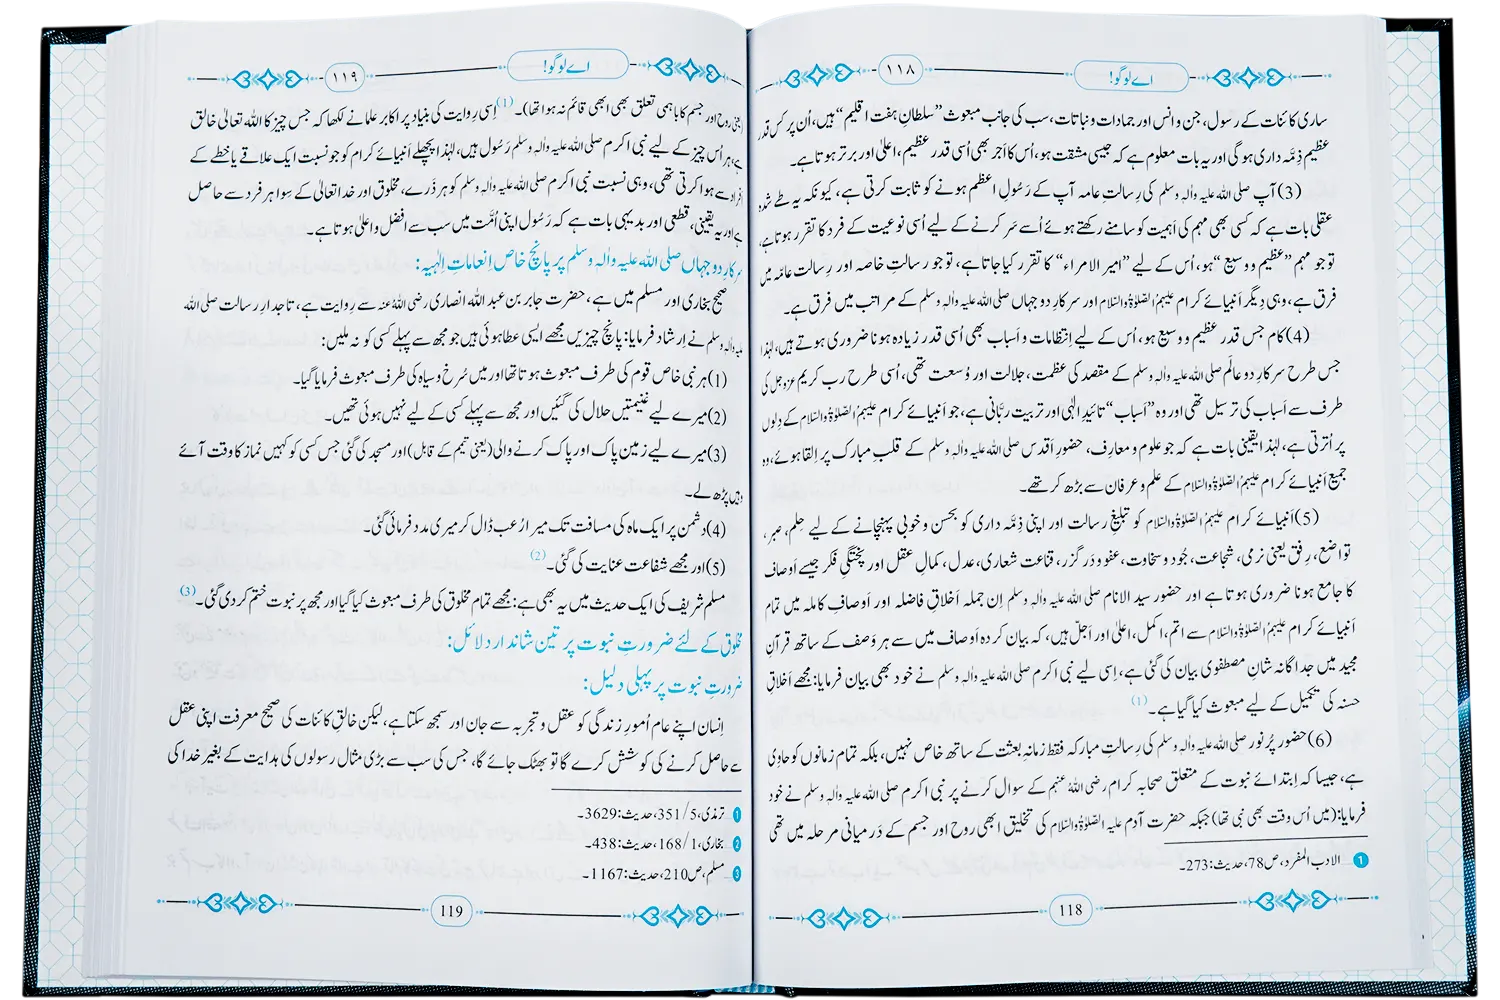 ۱۱۸
اے لوگو!
ساری کائنات کے رسول، جن و انس اور جمادات و نباتات، سب کی جانب مبعوث ”سلطانِ ہفت اقلیم“ ہیں، اُن پر کس قدر
عظیم ذِمَّہ داری ہوگی اور یہ بات معلوم ہے کہ جیسی مشقت ہو، اُس کا اَجر بھی اُسی قدر عظیم، اعلیٰ اور برتر ہوتا ہے۔
(3) آپ صلی اللہ علیہ واٰلہٖ وسلم کی رسالتِ عامہ آپ کے رَسُولِ اعظم ہونے کو ثابت کرتی ہے، کیونکہ یہ طے شدہ
عقلی بات ہے کہ کسی بھی مہم کی اَہمیت کو سامنے رکھتے ہوئے اُسے سَر کرنے کے لیے اُسی نوعیت کے فرد کا تقرر ہوتا ہے،
تو جو مہم ”عظیم و وسیع“ ہو، اُس کے لیے ”امیر الامراء“ کا تقرر کیا جاتا ہے، تو جو رسالتِ خاصہ اور رسالتِ عامّہ میں
فرق ہے، وہی دِیگر اَنبیائے کرام علیہمُ الصّلوٰۃُ والسّلام اور سرکارِ دو جہاں صلی اللہ علیہ واٰلہٖ وسلم کے مراتب میں فرق ہے۔
(4) کام جس قدر عظیم و وسیع ہو، اُس کے لیے اِنتظامات و اَسباب بھی اُسی قدر زیادہ ہونا ضروری ہوتے ہیں، لہٰذا
جس طرح سرکارِ دو عالَم صلی اللہ علیہ واٰلہٖ وسلم کے مقصد کی عظمت، جلالت اور وُسعت تھی، اُسی طرح رب کریم عزوجل کی
طرف سے اَسباب کی ترسیل تھی اور وہ ”اَسباب“ تائیدِ الٰہی اور تربیت ربّانی ہے، جو اَنبیائے کرام علیہمُ الصّلوٰۃُ والسّلام کے دِلوں
پر اُترتی ہے، لہٰذا یقینی بات ہے کہ جو علوم و معارف، حضورِ اَقدس صلی اللہ علیہ واٰلہٖ وسلم کے قلبِ مبارک پر اِلقا ہوئے، وہ
جمیع اَنبیائے کرام علیہمُ الصّلوٰۃُ والسّلام کے علم و عرفان سے بڑھ کر تھے۔
(5) اَنبیائے کرام علیہمُ الصّلوٰۃُ والسّلام کو تبلیغِ رسالت اور اپنی ذِمَّہ داری کو بحسن و خوبی پہنچانے کے لیے حِلم، صبر،
تواضع، رِفق یعنی نرمی، شجاعت، جُود و سخاوت، عفو و درگزر، قناعت شعاری، عدل، کمالِ عقل اور پختگیِ فکر جیسے اَوصاف
کا جامع ہونا ضروری ہوتا ہے اور حضور سید الانام صلی اللہ علیہ واٰلہٖ وسلم اِن جملہ اَخلاقِ فاضلہ اور اَوصافِ کاملہ میں تمام
اَنبیائے کرام علیہمُ الصّلوٰۃُ والسّلام سے اتم، اکمل، اعلیٰ اور اَجل ہیں، کہ بیان کردہ اَوصاف میں سے ہر وَصف کے ساتھ قرآنِ
مجید میں جداگانہ شانِ مصطفوی بیان کی گئی ہے، اِسی لیے نبی اکرم صلی اللہ علیہ واٰلہٖ وسلم نے خود بھی بیان فرمایا: مجھے اَخلاقِ
حسنہ کی تکمیل کے لیے مبعوث کیا گیا ہے۔(1)
(6) حضور پُرنور صلی اللہ علیہ واٰلہٖ وسلم کی رِسالتِ مبارکہ فقط زمانۂ بعثت کے ساتھ خاص نہیں، بلکہ تمام زمانوں کو حاوِی
ہے، جیسا کہ اِبتدائے نبوت کے متعلق صحابہ کرام رضی اللہُ عنہم کے سوال کرنے پر نبی اکرم صلی اللہ علیہ واٰلہٖ وسلم نے خود
فرمایا: (میں اُس وقت بھی نبی تھا) جبکہ حضرت آدم علیہ الصّلوٰۃُ والسّلام کی تخلیق ابھی روح اور جسم کے دَرمیانی مرحلہ میں تھی
1 الادب المفرد، ص78، حدیث: 273۔
118
۱۱۹
اے لوگو!
(یعنی روح اور جسم کا باہمی تعلق بھی ابھی قائم نہ ہوا تھا)۔(1) اِسی رِوایت کی بنیاد پر اکابر علما نے لکھا کہ جس چیز کا اللہ تعالیٰ خالق
ہے، ہر اُس چیز کے لیے نبی اکرم صلی اللہ علیہ واٰلہٖ وسلم رَسُول ہیں، لہٰذا پچھلے اَنبیائے کرام کو جو نسبت ایک علاقے یا خطے کے
اَفراد سے ہوا کرتی تھی، وہی نسبت نبی اکرم صلی اللہ علیہ واٰلہٖ وسلم کو ہر ذَرے، مخلوق اور خدا تعالیٰ کے سِوا ہر فرد سے حاصل
ہے اور یہ یقینی، قطعی اور بدیہی بات ہے کہ رَسُول اپنی اُمَّت میں سب سے افضل و اعلیٰ ہوتا ہے۔
سرکارِ دو جہاں صلی اللہ علیہ واٰلہٖ وسلم پر پانچ خاص اِنعاماتِ اِلٰہیہ:
صحیح بخاری اور مسلم میں ہے، حضرت جابر بن عبد اللہ انصاری رضی اللہُ عنہ سے رِوایت ہے، تاجدارِ رسالت صلی اللہ
علیہ واٰلہٖ وسلم نے اِرشاد فرمایا: پانچ چیزیں مجھے ایسی عطا ہوئی ہیں جو مجھ سے پہلے کسی کو نہ ملیں:
(1) ہر نبی خاص قوم کی طرف مبعوث ہوتا تھا اور میں سُرخ و سیاہ کی طرف مبعوث فرمایا گیا۔
(2) میرے لیے غنیمتیں حلال کی گئیں اور مجھ سے پہلے کسی کے لیے نہیں ہوئی تھیں۔
(3) میرے لیے زمین پاک اور پاک کرنے والی (یعنی تیمم کے قابل) اور مسجد کی گئی جس کسی کو کہیں نماز کا وقت آئے
وہیں پڑھ لے۔
(4) دشمن پر ایک ماہ کی مسافت تک میرا رُعب ڈال کر میری مدد فرمائی گئی۔
(5) اور مجھے شفاعت عنایت کی گئی۔(2)
مسلم شریف کی ایک حدیث میں یہ بھی ہے: مجھے تمام مخلوق کی طرف مبعوث کیا گیا اور مجھ پر نبوت ختم کر دی گئی۔(3)
مخلوق کے لئے ضرورتِ نبوت پر تین شاندار دلائل:
ضرورتِ نبوت پر پہلی دلیل:
اِنسان اپنے عام اُمورِ زندگی کو عقل و تجربہ سے جان اور سمجھ سکتا ہے، لیکن خالقِ کائنات کی صحیح معرفت اپنی عقل
سے حاصل کرنے کی کوشش کرے گا تو بھٹک جائے گا، جس کی سب سے بڑی مثال رسولوں کی ہدایت کے بغیر خدا کی
1 ترمذی، 5/351، حدیث: 3629۔
2 بخاری، 1/168، حدیث: 438۔
3 مسلم، ص210، حدیث: 1167۔
119